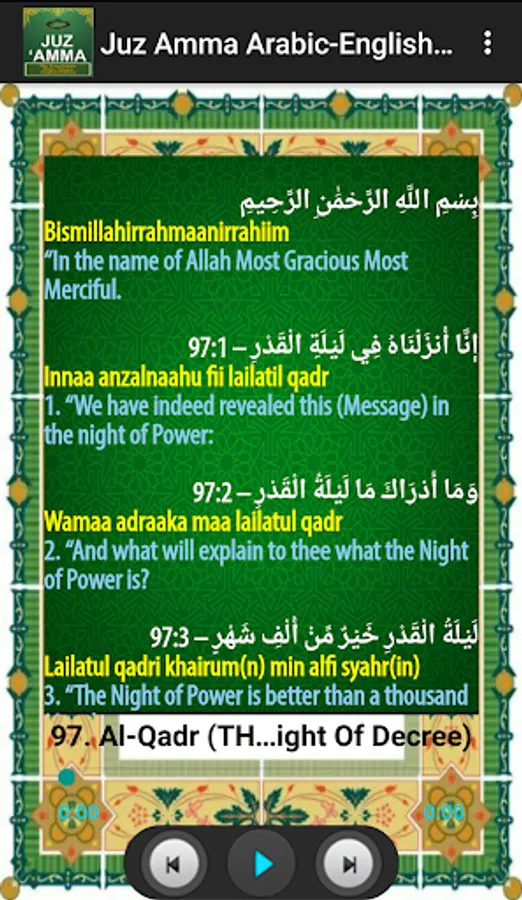 JUZ
'AMMA
Juz Amma Arabic-English...
بِسْمِ اللَّهِ الرَّحْمَٰنِ الرَّحِيمِ
Bismillahirrahmaanirrahiim
“In the name of Allah Most Gracious Most
Merciful.
إِنَّا أَنزَلْنَاهُ فِي لَيْلَةِ الْقَدْرِ – 97:1
Innaa anzalnaahu fii lailatil qadr
1. “We have indeed revealed this (Message) in
the night of Power:
وَمَا أَدْرَاكَ مَا لَيْلَةُ الْقَدْرِ – 97:2
Wamaa adraaka maa lailatul qadr
2. “And what will explain to thee what the Night
of Power is?
لَيْلَةُ الْقَدْرِ خَيْرٌ مِّنْ أَلْفِ شَهْرٍ – 97:3
Lailatul qadri khairum(n) min alfi syahr(in)
3. “The Night of Power is better than a thousand
97. Al-Qadr (TH...ight Of Decree)
0:00 0:00